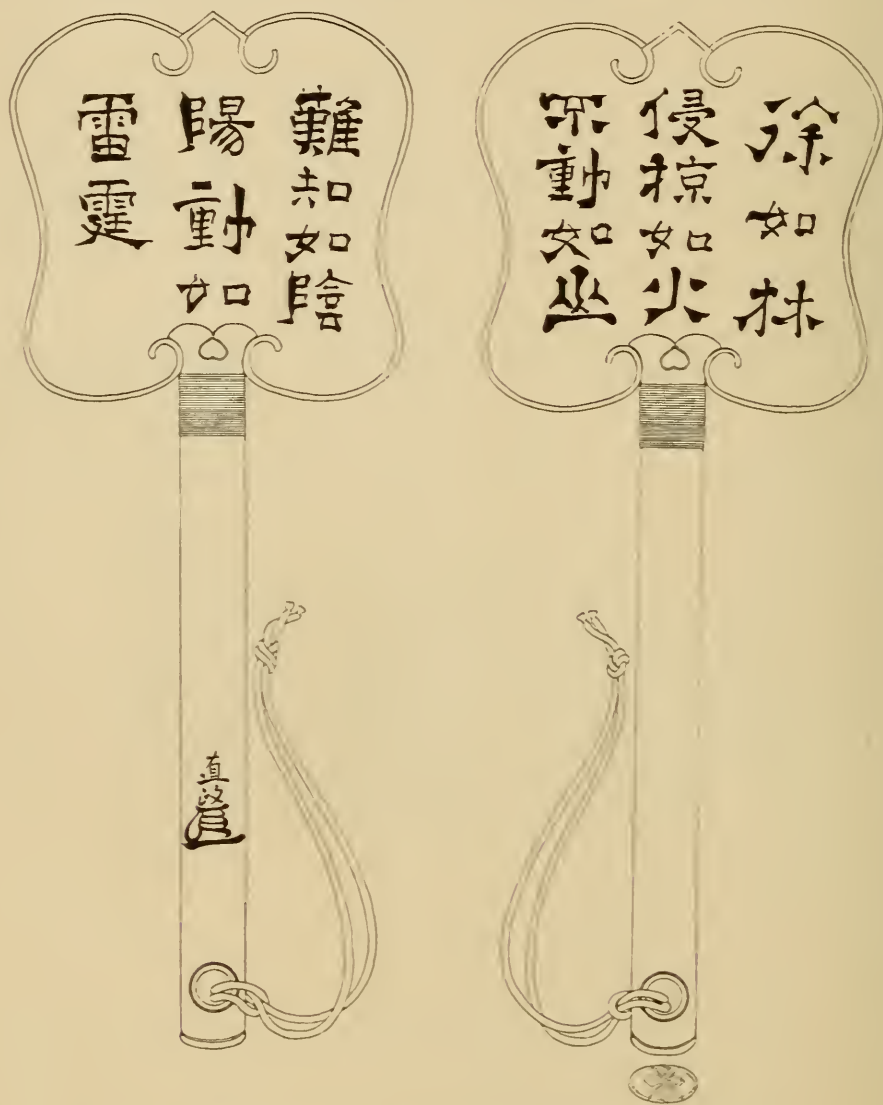 徐如林
侵掠如火
不動如山
難知如陰
陽動如
雷霆
直政